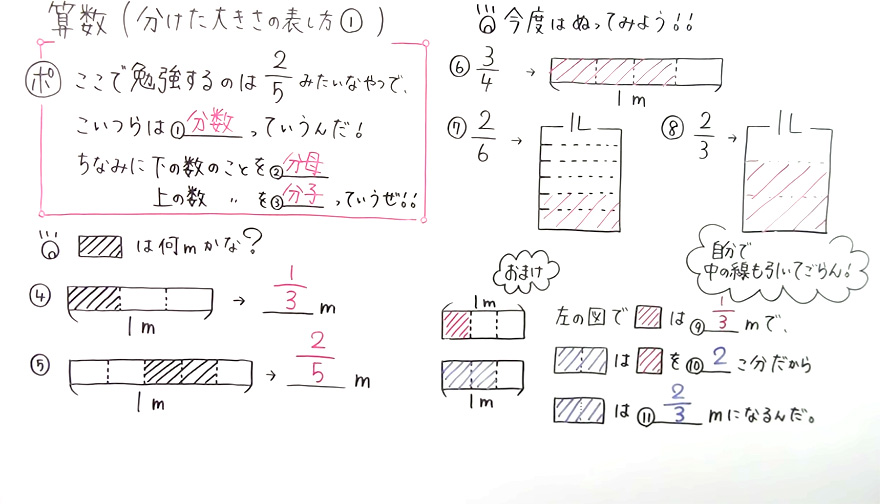 算数(分けた大きさの表し方①)
ポ ここで勉強するのは 2/5 みたいなやつで、
こいつらは①分数っていうんだ!
ちなみに下の数のことを②分母
上の数 〃 を③分子っていうぜ!!
は何mかな?
④ → 1/3 m
1m
⑤ → 2/5 m
1m
今度はぬってみよう!!
⑥ 3/4 →
1m
⑦ 2/6 → 1L
⑧ 2/3 → 1L
自分で
中の線も引いてごらん!
おまけ
1m
左の図で は⑨ 1/3 mで、
は を⑩ 2 こ分だから
1m
は⑪ 2/3 mになるんだ。